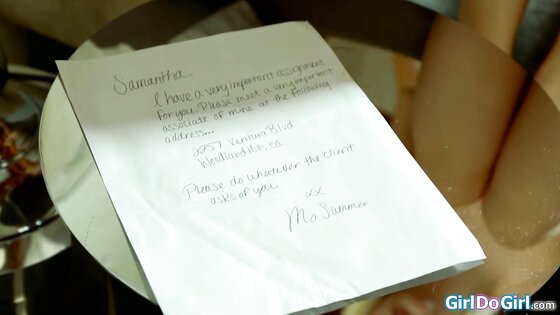 Samantha.
I have a very important assignment
for you. Please meet a very important
associate of mine at the following
address...
2257 Ventura Blvd
Woodland Hills, ca
Please do whatever the client
asks of you.
xx
Ms Summer
GirlDoGirl.com